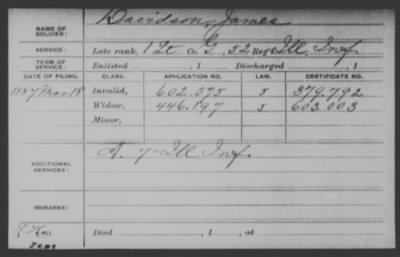 Davidson, James
NAME OF SOLDIER:
SERVICE: Late rank, 1 Lt Co. G, 52 Reg't Ill. Inf.
TERM OF SERVICE: Enlisted , 1 Discharged , 1
DATE OF FILING. CLASS. APPLICATION NO. LAW. CERTIFICATE NO.
1887 Mar 18 Invalid, 602.575 J 379.792
Widow, 446.197 J 603.003
Minor,
ADDITIONAL SERVICES: A. 7 Ill. Inf.
REMARKS:
Died , 1 , at